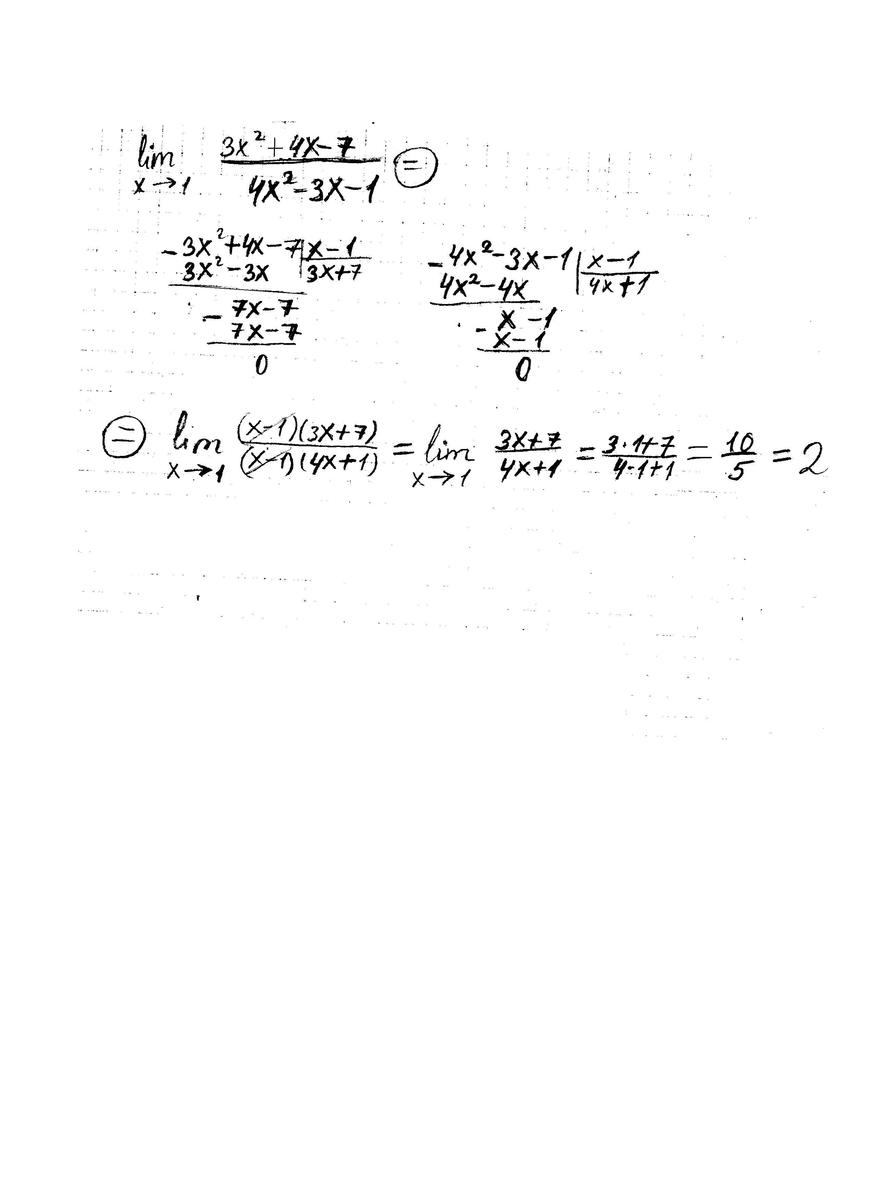 lim x→1 (3x²+4x−7)/(4x²−3x−1) =
−3x²+4x−7 | x−1    −4x²−3x−1 | x−1
3x²−3x | 3x+7    4x²−4x | 4x+1
−7x−7    −x−1
7x−7    x−1
0    0
= lim x→1 ((x−1)(3x+7))/((x−1)(4x+1)) = lim x→1 (3x+7)/(4x+1) = (3·1+7)/(4·1+1) = 10/5 = 2